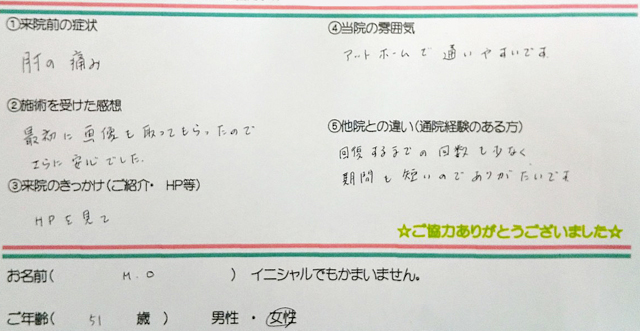 ①来院前の症状
肘の痛み
②施術を受けた感想
最初に画像も取ってもらったので
さらに安心でした。
③来院のきっかけ(ご紹介・HP等)
HPを見て
④当院の雰囲気
アットホームで通いやすいです。
⑤他院との違い(通院経験のある方)
回復するまでの回数も少なく、
期間も短いのでありがたいです
☆ご協力ありがとうございました☆
お名前( M.O ) イニシャルでもかまいません。
ご年齢( 51 歳 ) 男性・女性